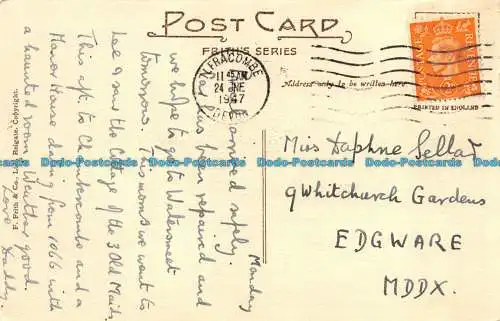 POST CARD
FRITH'S SERIES
ILFRACOMBE
11 45 AM
24 JNE
1947
DEVON
Address only to be written here
PRINTED IN ENGLAND
Monday
Arrived safely.
Car has been repaired and
we hope to go to Watersmeet
tomorrow. This morn we went to
Lee & saw the Cottage of the 3 Old Maids.
This aft. to Chambercombe and a
Manor House dating from 1066 with
a haunted room. Weather good.
Love
Daddy.
F. Frith & Co., Ltd., Reigate. Copyright.
Miss Daphne Sellar
9 Whitchurch Gardens
EDGWARE
MDDX.
Dodo-Postcards.com